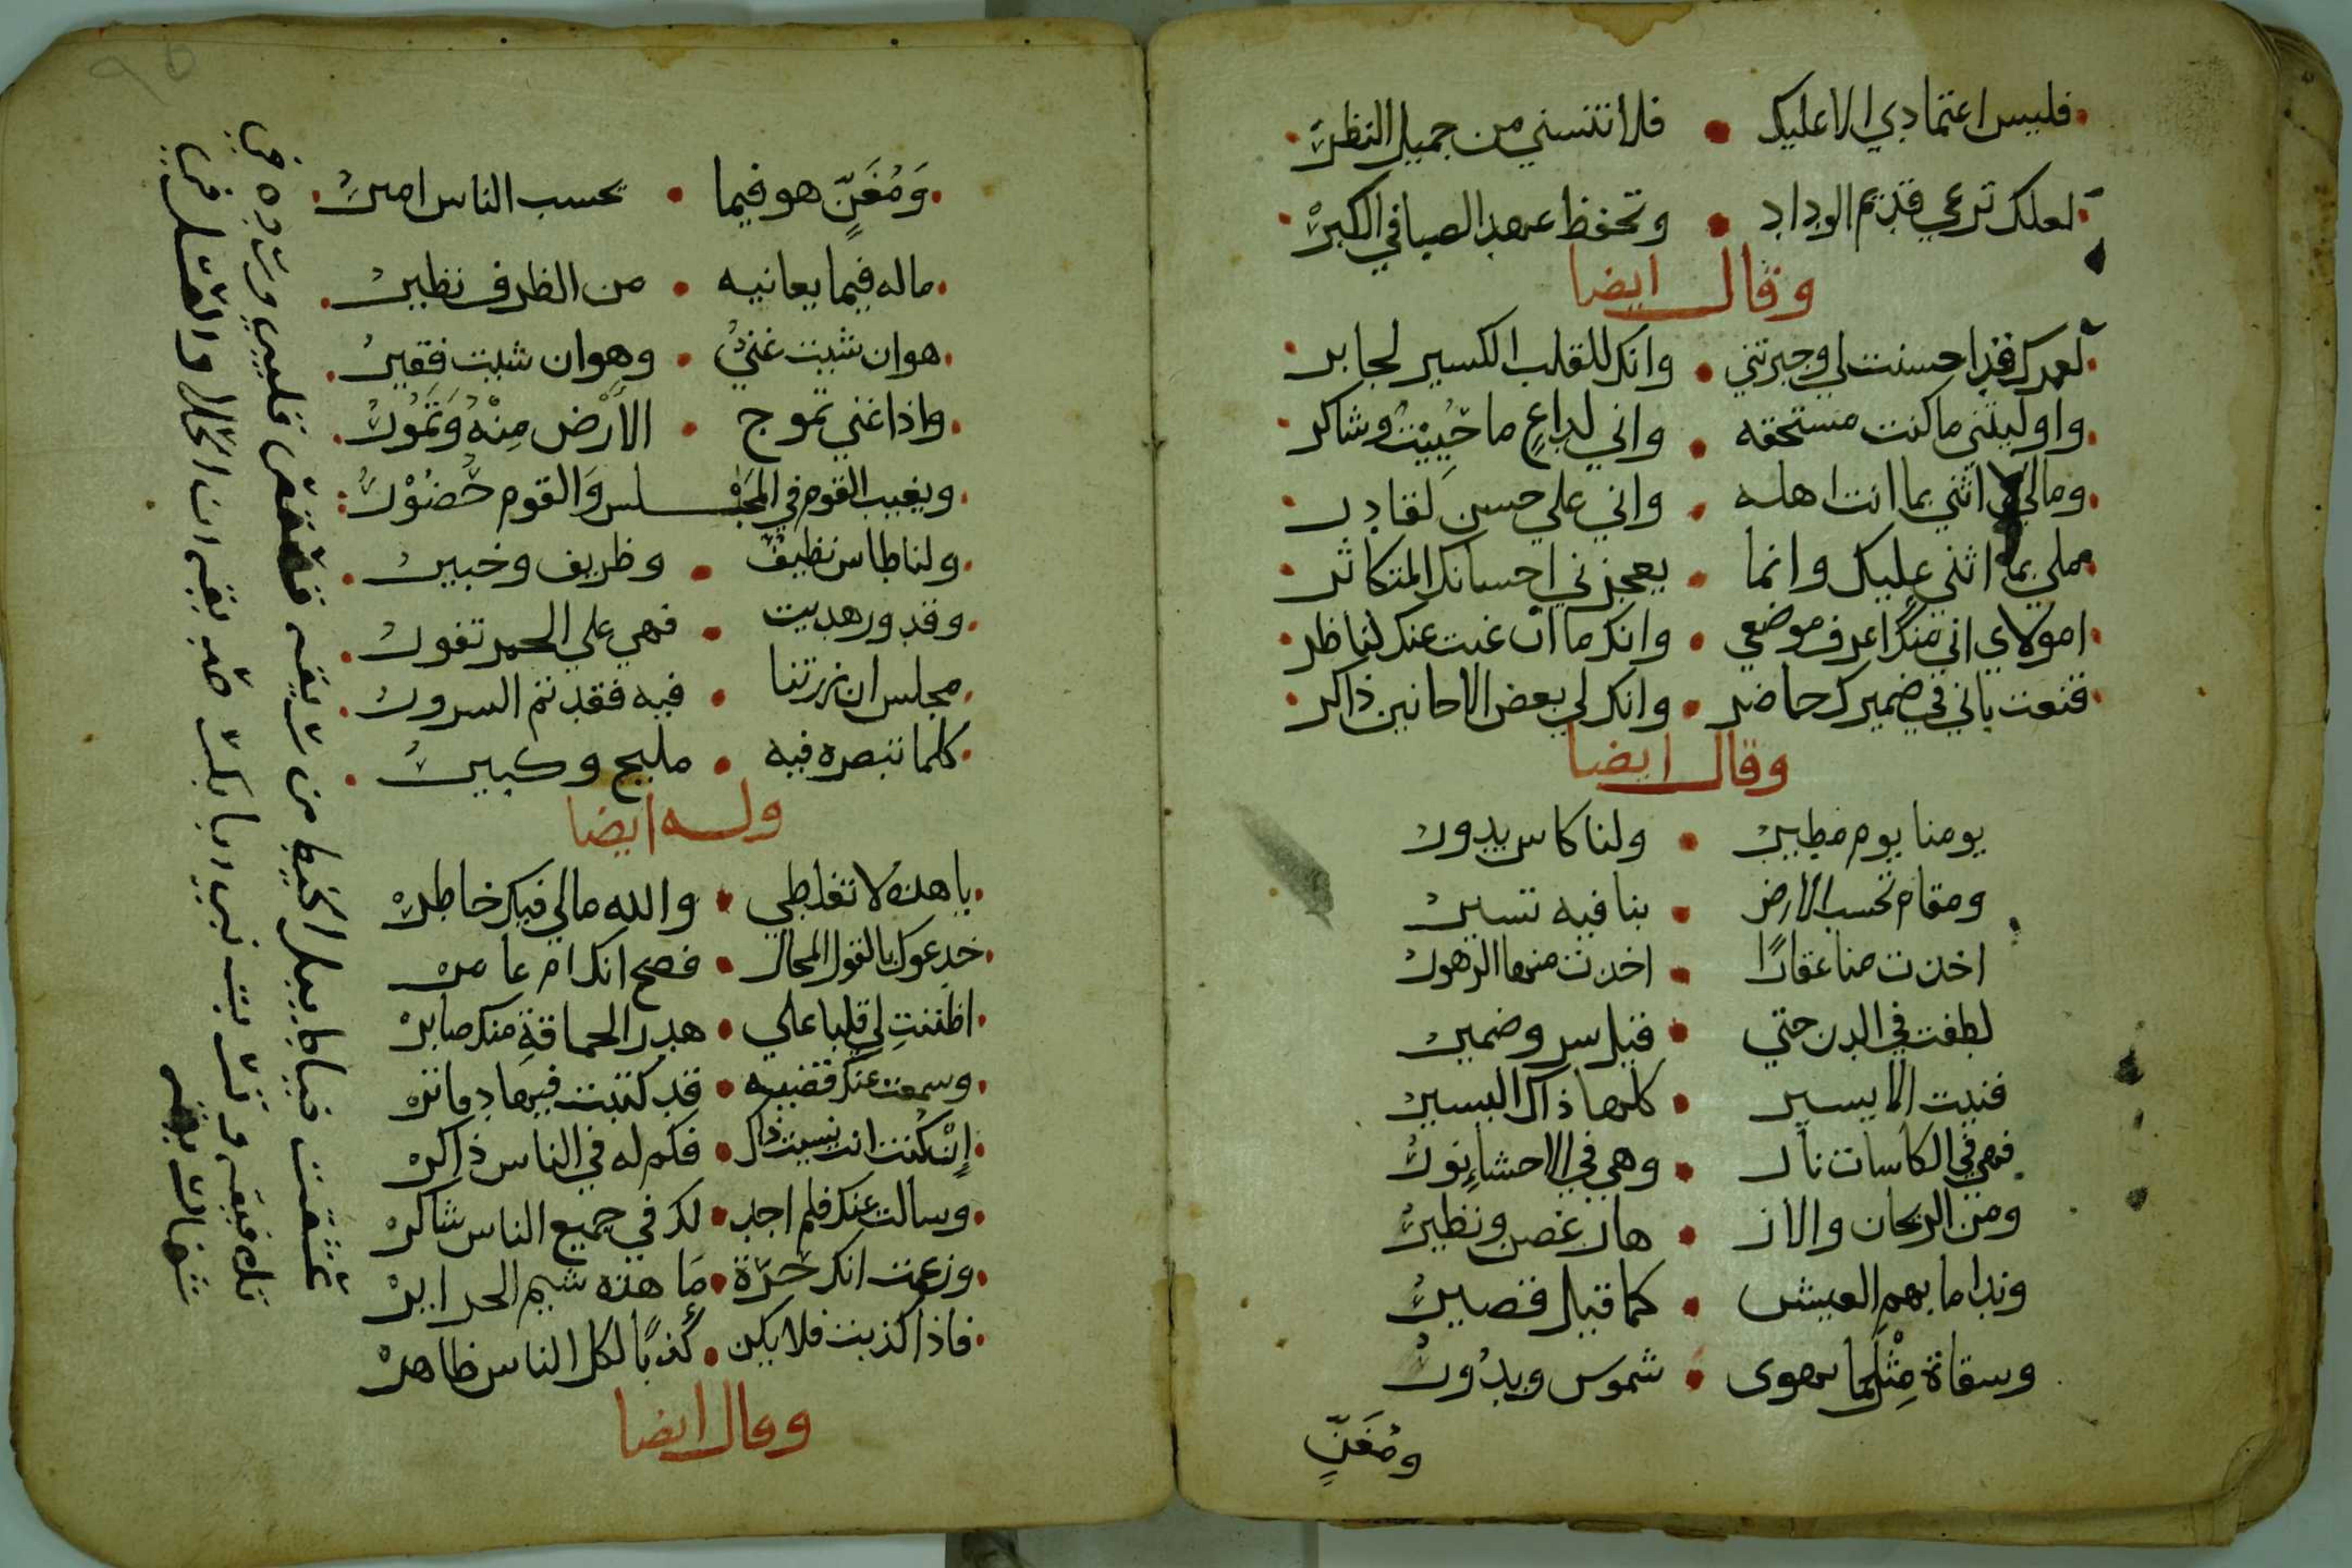 فليس اعتمادي الا عليك • فلا تنسني من جميل النظر
لعلك ترعي قديم الوداد • وتحفظ عهد الصبا في الكبر
وقال ايضا
لعمرك قد احسنت لي وجبرتني • وانك للقلب الكسير لجابر
واوليتني ما كنت مستحقه • واني لداع ما حييت وشاكر
ومالي اثني بما انت اهله • واني علي حسن لقادر
ملي بما اثني عليك وانما • يعجزني احسانك المتكاثر
امولاي اني منك اعرف موضعي • وانك ما ان غبت عنك لناظر
قنعت باني في ضميرك حاضر • وانك لي بعض الاحانين ذاكر
وقال ايضا
يومنا يوم مطير • ولنا كاس يدور
ومقام تحسب الارض • بنا فيه تسير
اخذت منا عقارًا • اخذت منها الزهور
لطفت في الدن حتي • قيل سر وضمير
فنيت الا يسير • كلها ذاك اليسير
فهي في الكاسات نار • وهي في الاحشاء نور
ومن الريحان والاز • هار غصن ونظير
وندا ما بهم العيش • كما قيل قصير
وسقاة مِثْلَما تهوى • شموس وبدُور
ومُغَنٍّ
وَمُغَنٍّ هو فيما • يحسب الناس امير
ماله فيما يعانيه • من الظرف نظير
هو ان شيت غني • وهو ان شيت فقير
واذا غني تموج • الأَرْض مِنْهُ وَتَمُورُ
ويغيب القوم في المجـ ـلس وَالقوم حُضُوْرُ
ولنا طاس نظيف • وظريف وخبير
وقدور هديت • فهي علي الجمر تفور
مجلس ان زرتنا • فيه فقد تم السرور
كلما تبصره فيه • مليح وكبير
وله ايضا
يا هذه لا تغلطي • والله مالي فيك خاطر
خدعوك بالقول المحال • فصح انك ام عامر
اظننتِ لي قلبا علي • هدر الحماقةِ منك صابر
وسمعت عنك قضيه • قد كتبت فيها دفاتر
إنْ كُنت انت نسيت ذاك • فكم له في الناس ذاكر
وسالت عنك فلم اجد • لك في جميع الناس شاكر
وزعمت انك حرّة • مَا هذه شيم الحراير
فاذا كذبت فلا يكن • كُذبًا لكل الناس ظاهر
وقال ايضا